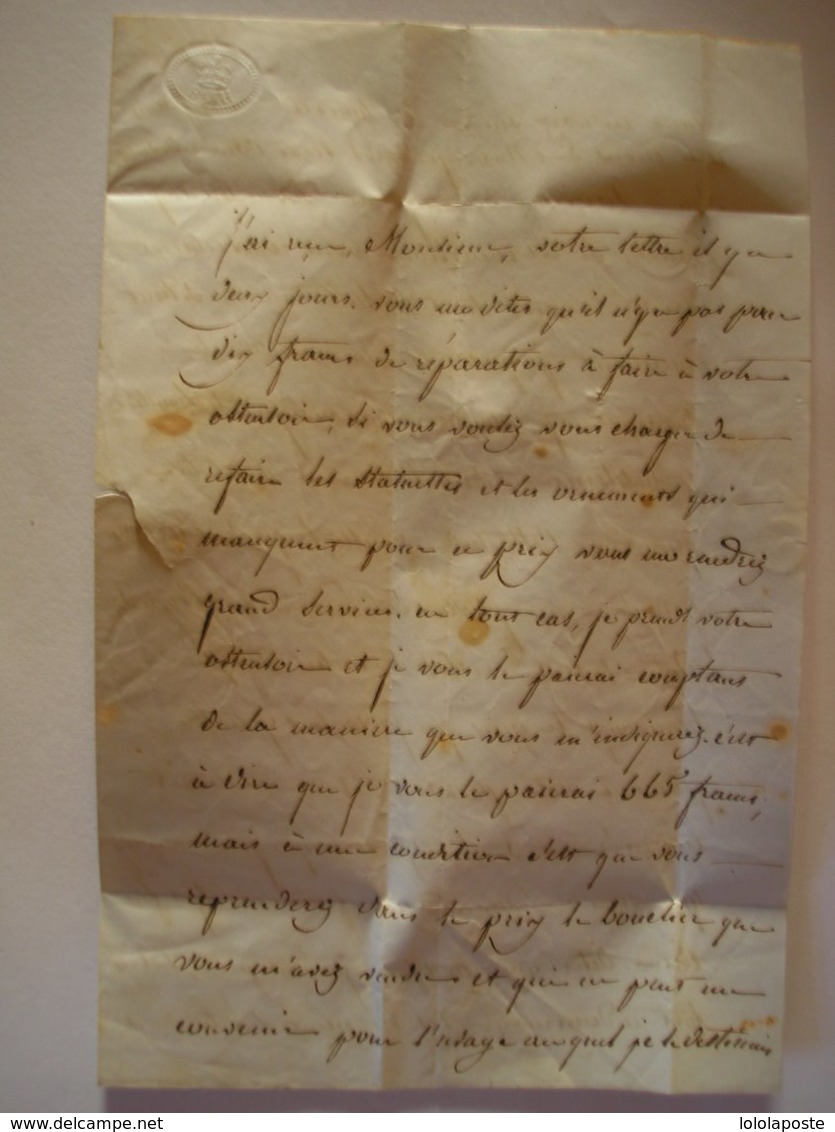 J'ai reçu, Monsieur, votre lettre il y a
deux jours. vous me dites qu'il n'y a pas pour
dix francs de réparations à faire à votre
ostensoir, si vous voulez vous charger de
refaire les statuettes et les ornements qui
manquent pour ce prix vous me rendrez
grand service. en tout cas, je prends votre
ostensoir et je vous le paierai comptant
de la manière que vous m'indiquerez. c'est
à dire que je vous le paierai 665 francs,
mais à une condition c'est que vous
reprenderez dans le prix le bouclier que
vous m'avez vendu et qui ne peut me
convenir pour l'usage auquel je le destinais
delcampe.net
lololaposte